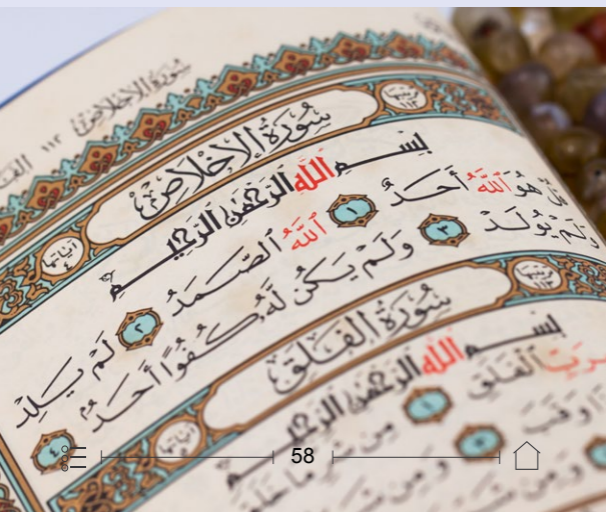 سُورَةُ الإِخْلَاصِ ١١٢
سُورَةُ الإِخْلَاصِ
آيَاتُهَا ٤
بِسْمِ اللَّهِ الرَّحْمَٰنِ الرَّحِيمِ
قُلْ هُوَ اللَّهُ أَحَدٌ ١ اللَّهُ الصَّمَدُ ٢ لَمْ يَلِدْ
وَلَمْ يُولَدْ ٣ وَلَمْ يَكُن لَّهُ كُفُوًا أَحَدٌ ٤
سُورَةُ الْفَلَقِ
بِسْمِ اللَّهِ الرَّحْمَٰنِ الرَّحِيمِ
بِرَبِّ الْفَلَقِ ١ مِن شَرِّ مَا خَلَقَ
58